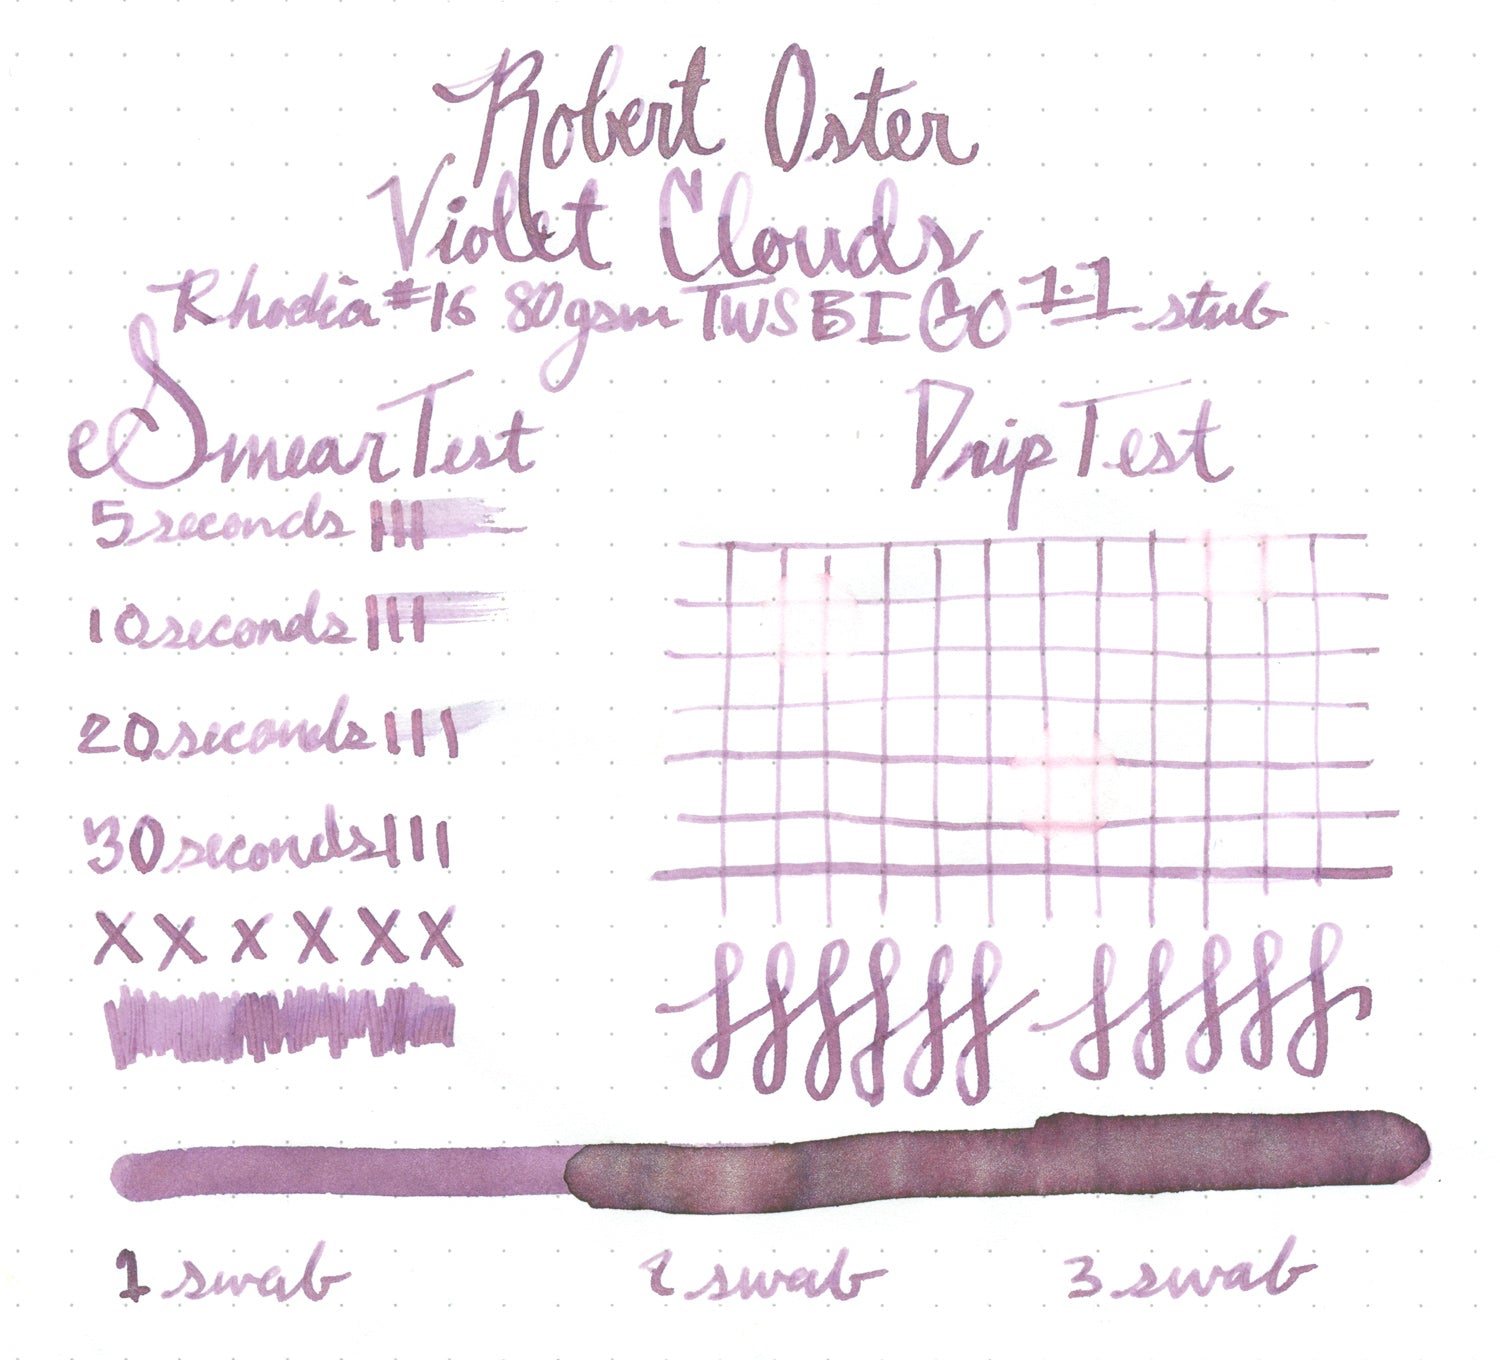 Robert Oster
Violet Clouds
Rhodia #16 80gsm TWSBI GO 1.1 stub
Smear Test
5 seconds
10 seconds
20 seconds
30 seconds
x x x x x x
Drip Test
1 swab
2 swab
3 swab